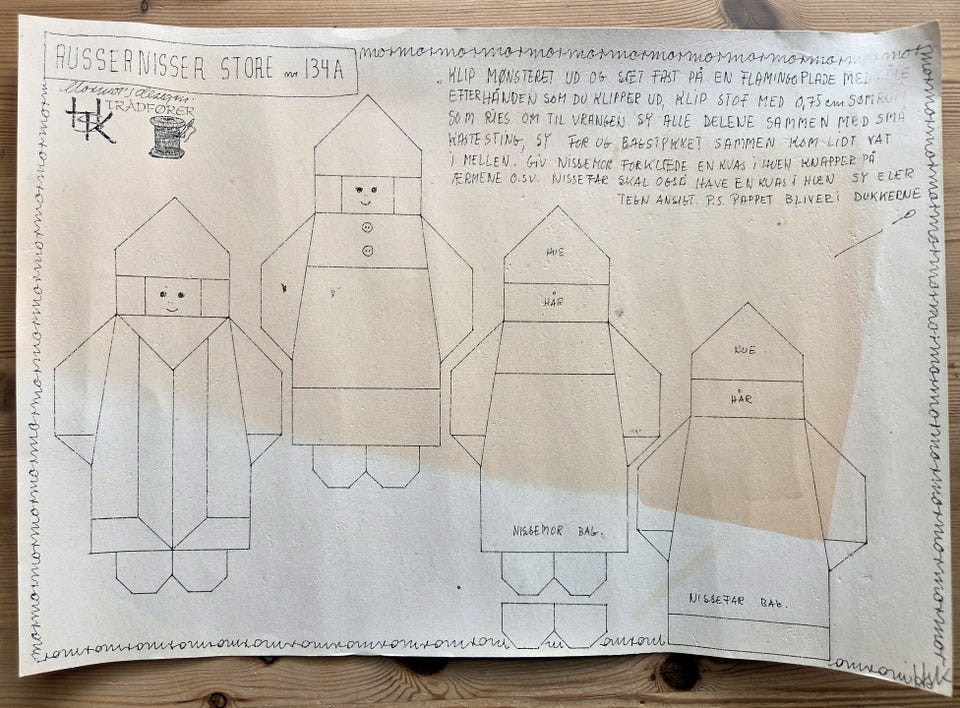 RUSSERNISSER STORE nr 134A
Mormor's design:
HK TRÅDFØRER
KLIP MØNSTERET UD OG SÆT FAST PÅ EN FLAMINGOPLADE MED
EFTERHÅNDEN SOM DU KLIPPER UD, KLIP STOF MED 0,75 cm SØMRUM
SOM RIES OM TIL VRANGEN SY ALLE DELENE SAMMEN MED SMÅ
KASTESTING, SY FOR OG BAGSTYKKET SAMMEN KOM LIDT VAT
I MELLEN. GIV NISSEMOR FORKLÆDE EN KVAS I HUEN KNAPPER PÅ
ÆRMENE O.SV. NISSEFAR SKAL OGSÅ HAVE EN KVAS I HUEN SY ELER
TEGN ANSIGT. P.S. PAPPET BLIVER I DUKKERNE
HUE
HÅR
HUE
HÅR
NISSEMOR BAG.
NISSEFAR BAG.